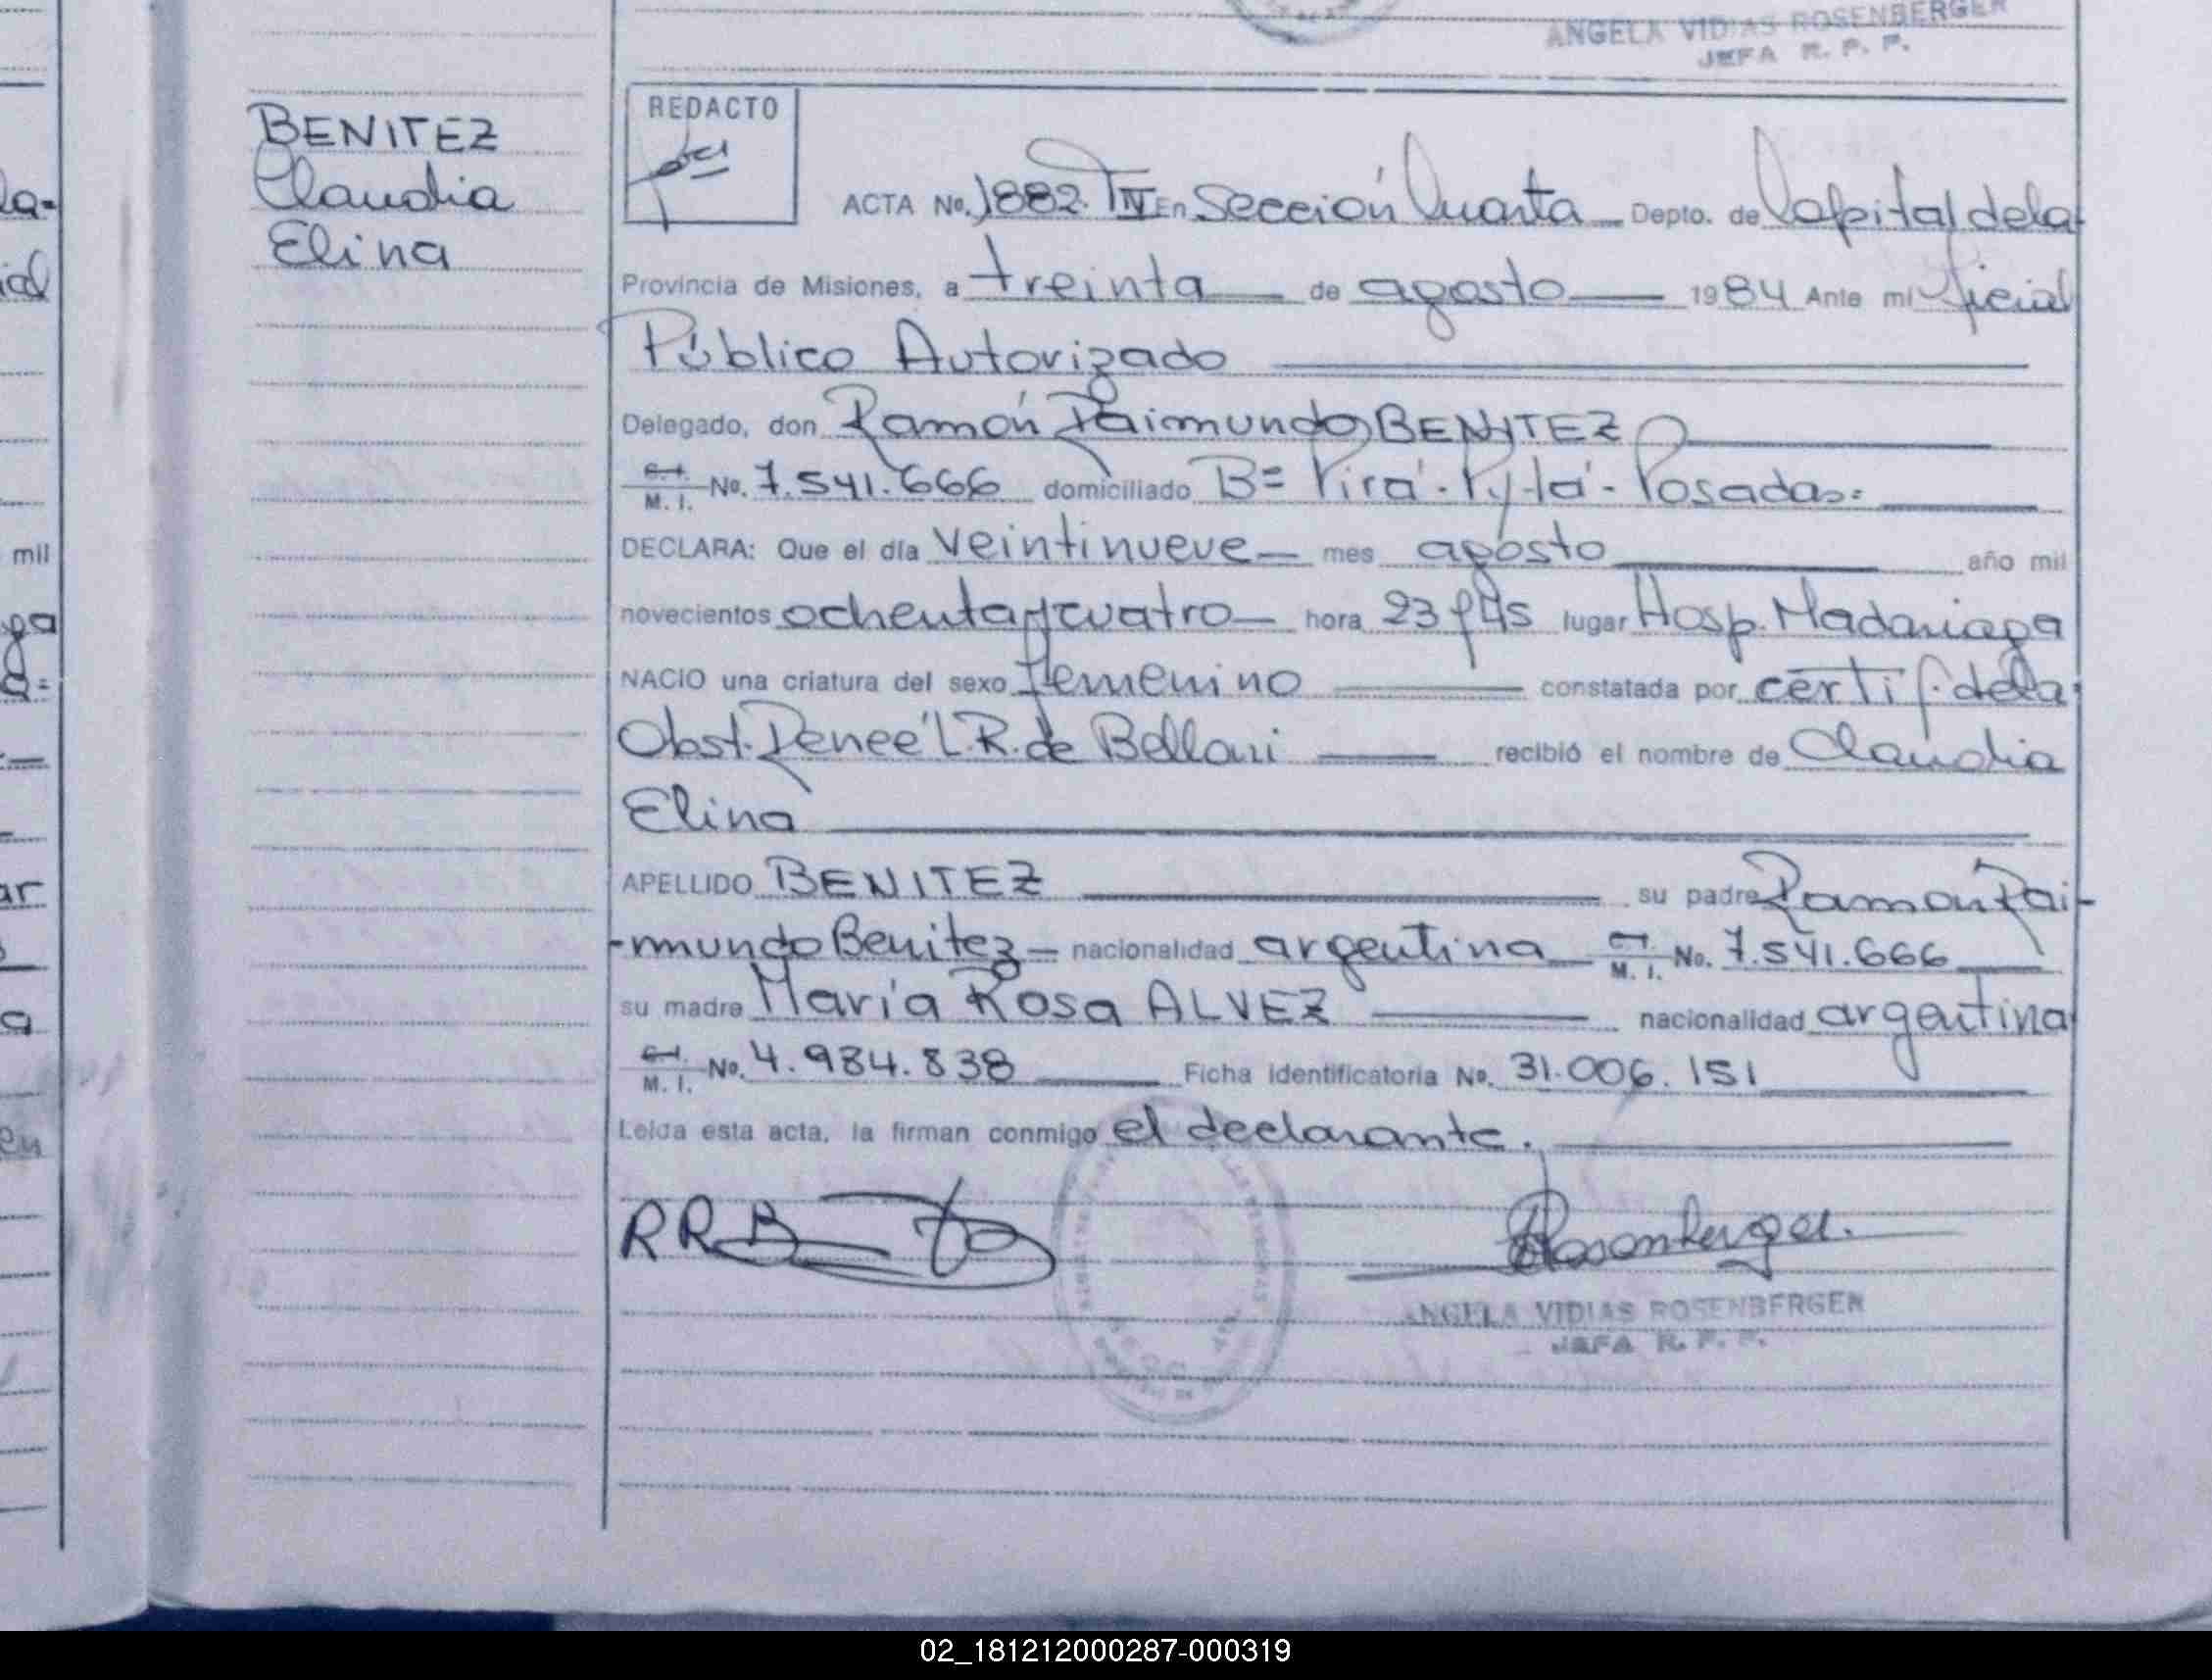 ANGELA VIDIAS ROSENBERGER
JEFA R. P. P.
BENITEZ
Claudia
Elina
REDACTO
ACTA No. 1882. T IV En Sección Cuarta Depto. de Capital de la
Provincia de Misiones, a treinta de agosto 1984 Ante mi Oficial
Público Autorizado
Delegado, don Ramón Raimundo BENITEZ
C.I. M. I. No. 7.541.666 domiciliado B= Pirá-Py-tá- Posadas=
DECLARA: Que el día veintinueve mes agosto año mil
novecientos ochenta y cuatro hora 23 y 45 lugar Hosp. Madariaga
NACIO una criatura del sexo femenino constatada por certif. de la
Obst. Reneé L.R. de Bellani recibió el nombre de Claudia
Elina
APELLIDO BENITEZ su padre Ramón Rai-
-mundo Benitez nacionalidad argentina C.I. M. I. No. 7.541.666
su madre María Rosa ALVEZ nacionalidad argentina
C.I. M. I. No. 4.984.838 Ficha identificatoria No. 31.006.151
Leída esta acta, la firman conmigo el declarante.
RRB
Rosenberger.
ANGELA VIDIAS ROSENBERGER
JEFA R. P. P.
la-
ial
mil
ga
a=
ar
a
en
02_181212000287-000319